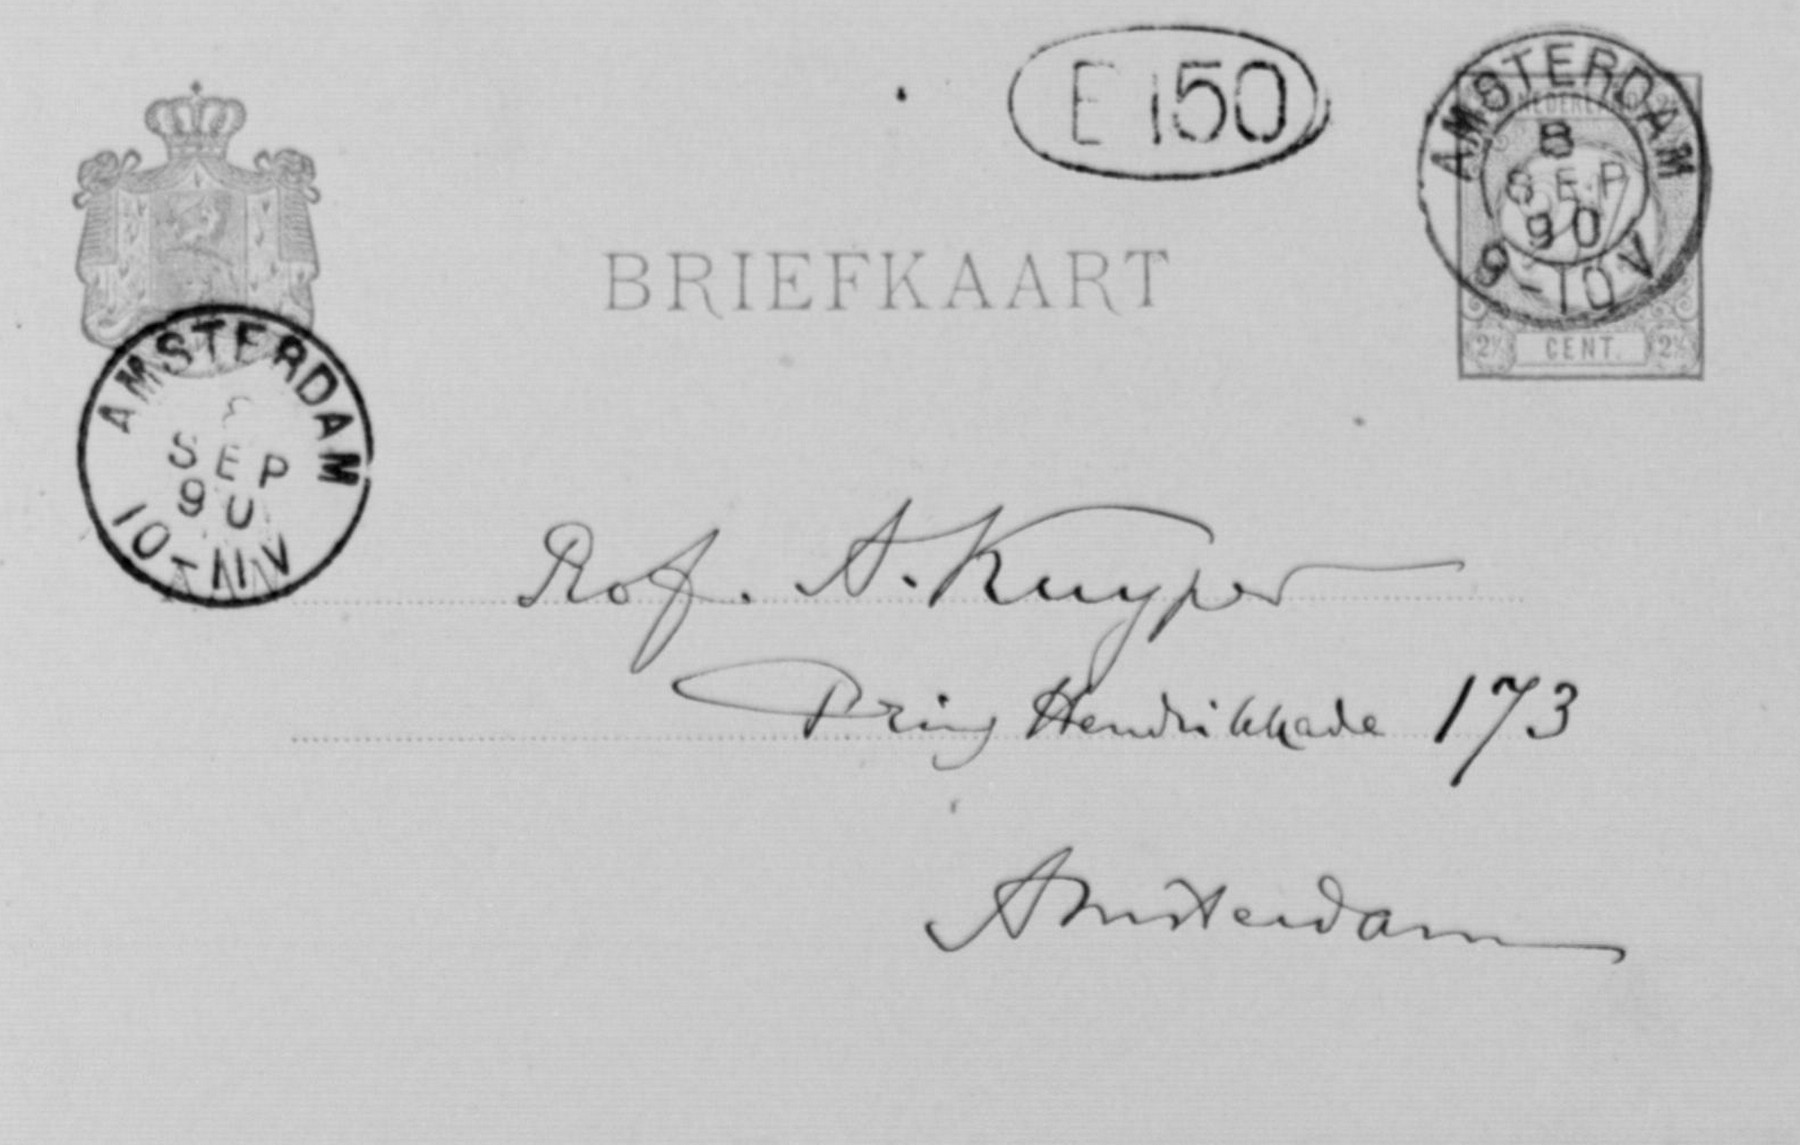 E 150
AMSTERDAM
8
SEP
90
9-10V
NEDERLAND
2½ CENT. 2½
BRIEFKAART
AMSTERDAM
8
SEP
90
10-11V
Prof. A. Kuyper
Prins Hendrikkade 173
Amsterdam